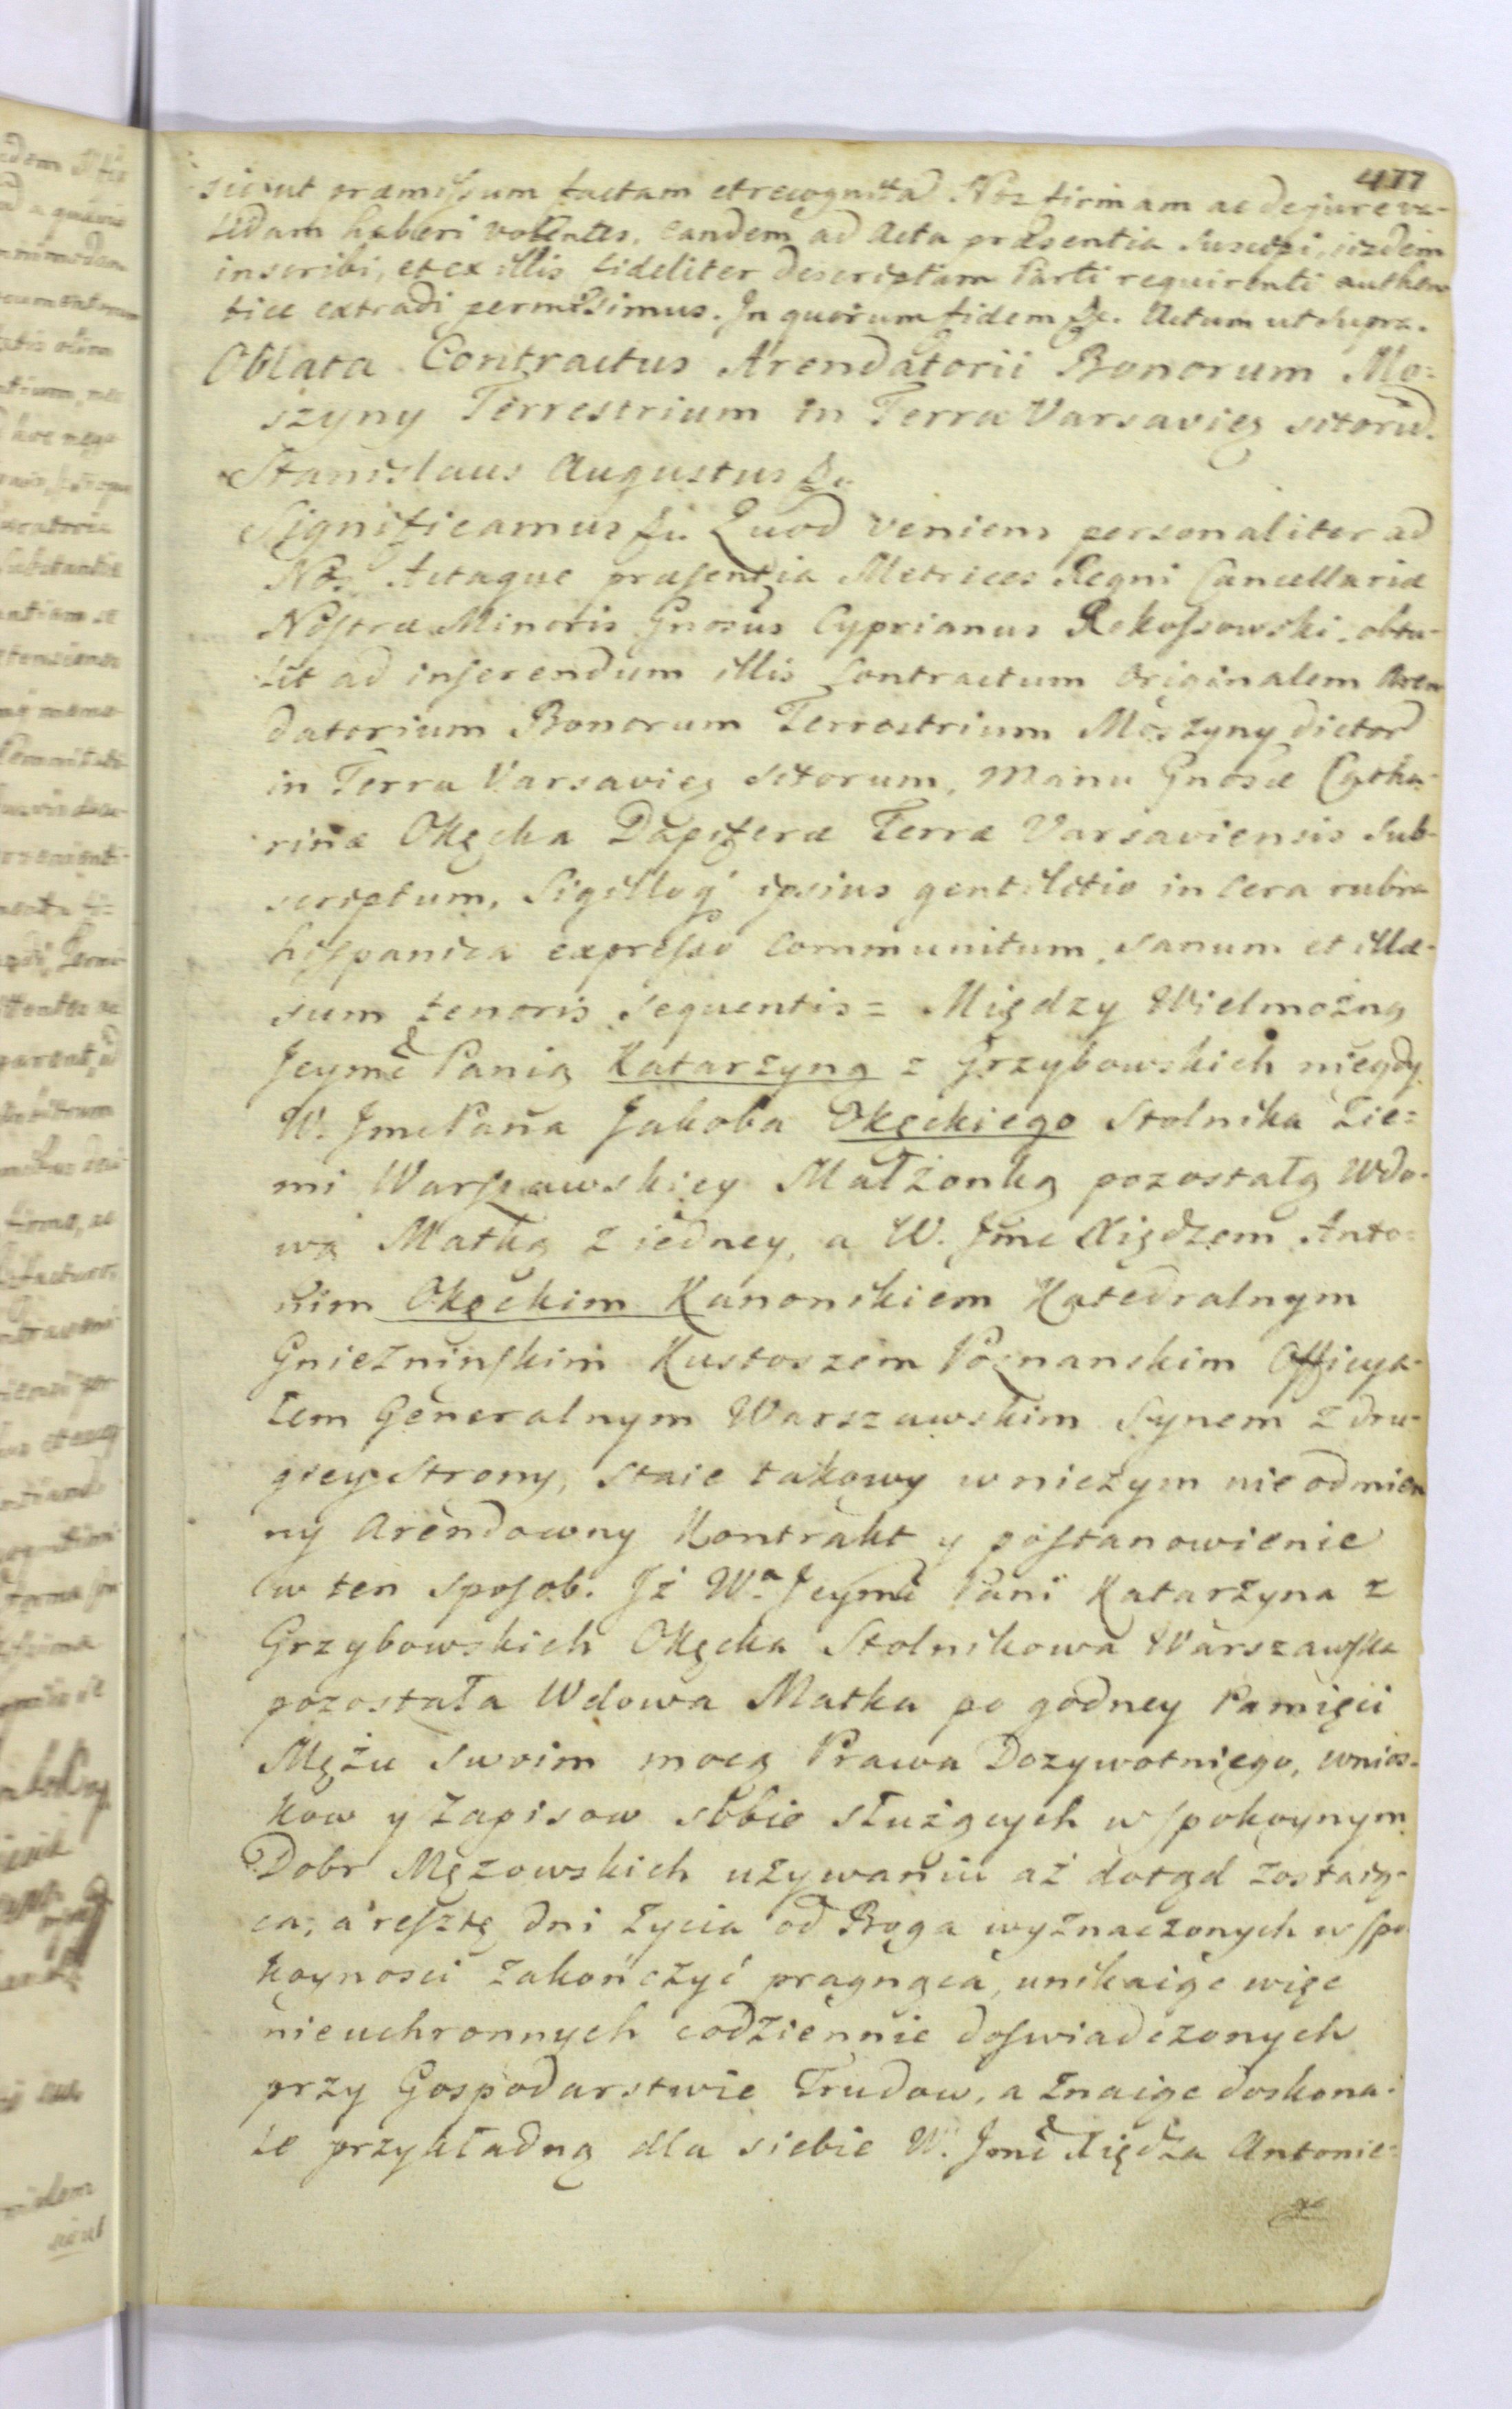 477
sicut præmissum factam et recognitã Nos firmam ac de jure va-
lidam haberi volentes, eandem ad Acta præsentia suscipi, iisdem
inscribi, et ex illis fideliter descriptam Parti requirenti authen
tice extradi permisimus. In quorum fidem &c. Actum ut supra.
Oblata Contractus Arendatorii Bonorum Mo=
szyny Terrestrium in Terra Varsavieñ sitorũ.
Stanislaus Augustus &c.
Significamus &c. Quod veniens personaliter ad
Nos Actaque præsentia Metrices Regni Cancellariæ
Nostræ Minoris Gnosus Cyprianus Rokossowski obtu-
lit ad inserendum illis Contractum Originalem Aren
datorium Bonorum Terrestrium Moszyny dictor
in Terra Varsavieñ sitorum, Manu Gnosæ Catha-
rinæ Okęcka Dapiferæ Terræ Varsaviensis sub-
scriptum, Sigilloq ipsius gentilitio in Cera rubra
hispanica expresso communitum, sanum et illæ-
sum tenoris sequentis = Między Wielmożną
Jeymć Panią Katarzyną z Grzybowskich niegdy
W. Jmć Pana Jakoba Okęckiego Stolnika Zie=
mi Warszawskiey Małżonką pozostałą Wdo-
wą Matką z iedney, a W. Jmć Xiędzem Anto=
nim Okęckim Kanonikiem Katedralnym
Gnieźninskim Kustoszem Poznanskim Officya-
łem Generalnym Warszawskim Synem z dru-
giey Strony, staie takowy w niczym nie odmien
ny Arendowny Kontrakt y postanowienie
w ten sposob. Jż Wa. Jeymć Pani Katarzyna z
Grzybowskich Okęcka Stolnikowa Warszawska
pozostała Wdowa Matka po godney Pamięci
Mężu swoim mocą Prawa Dożywotniego, wnios-
kow y Zapisow sobie służących w spokoynym
Dobr Mężowskich używaniu aż dotąd zostaią-
ca, a resztę dni życia od Boga wyznaczonych w spo
koynosci zakończyć pragnąca, unikaiąc więc
nieuchronnych codziennie doswiadczonych
przy Gospodarstwie Trudow, a znaiąc doskona-
le przykładną dla siebie W. Jmć Xiędza Antonie=
go